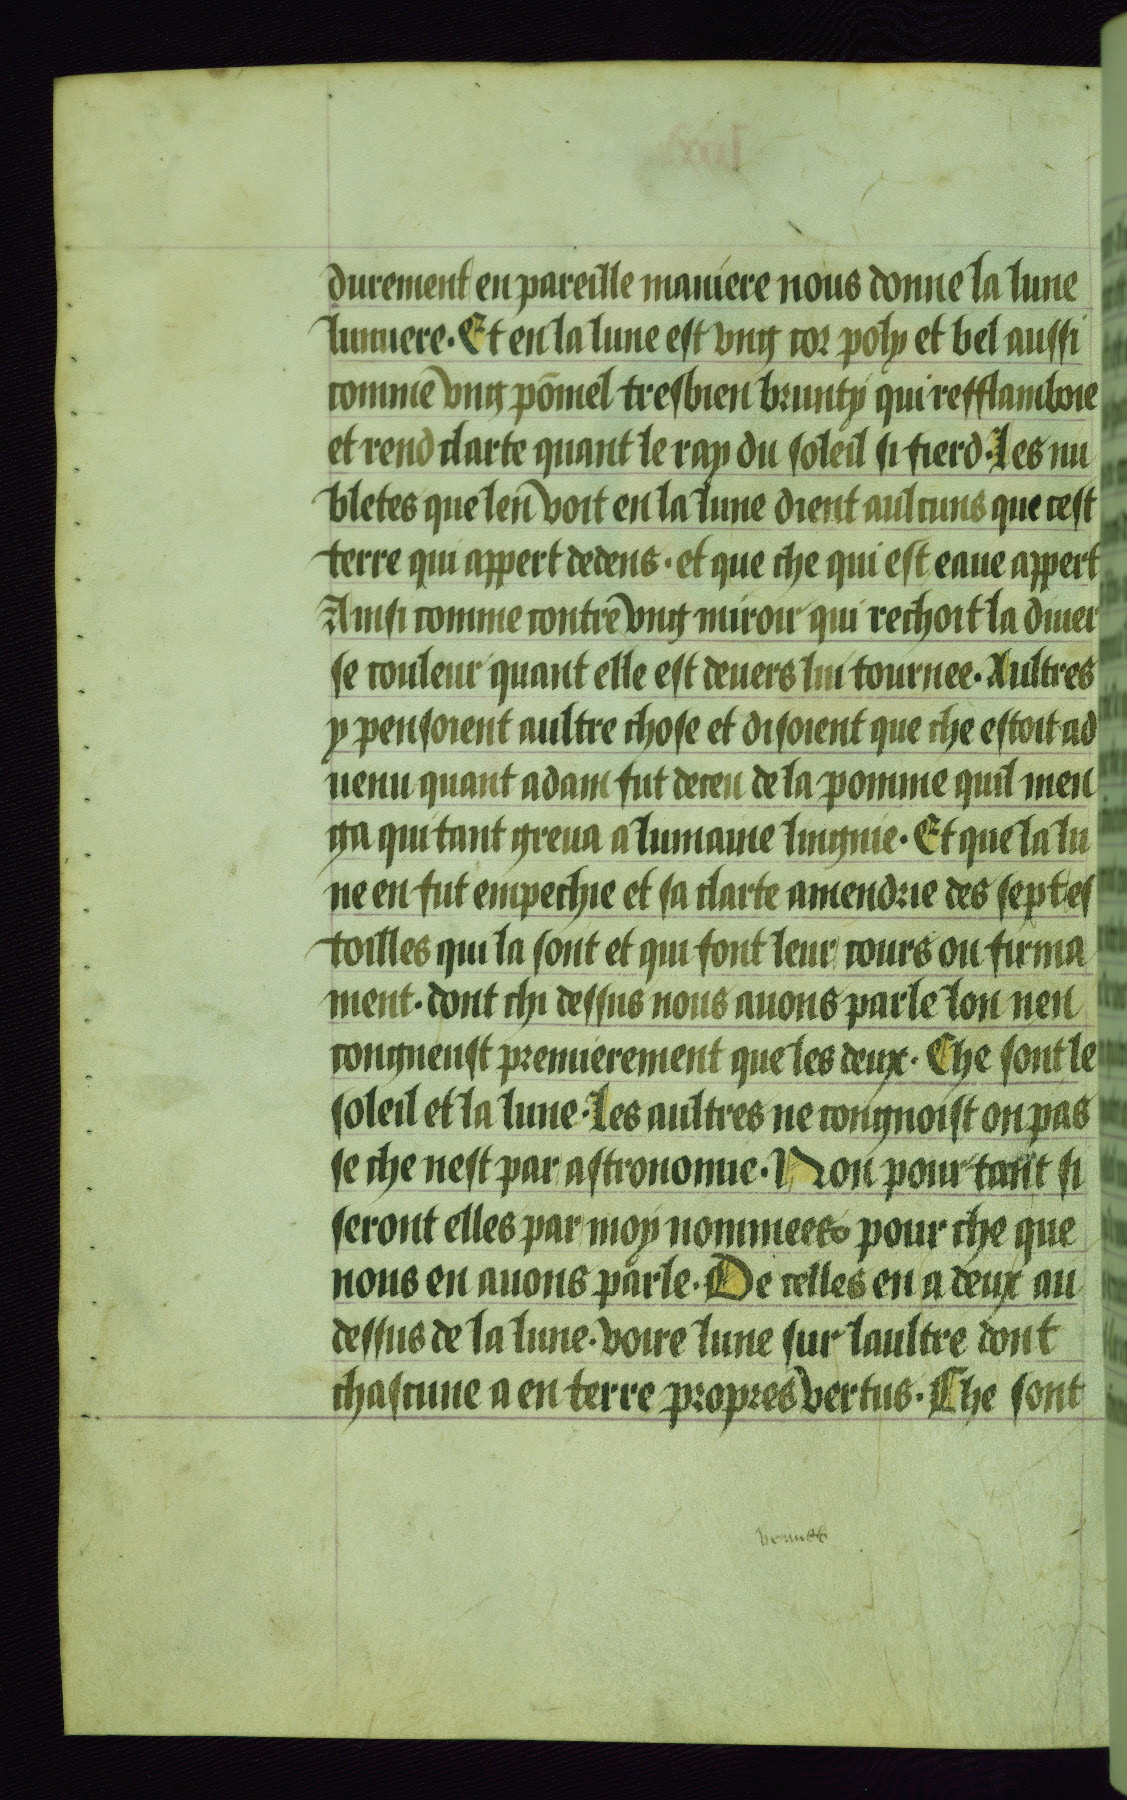 durement en pareille maniere nous donne la lune
lumiere. Et en la lune est vng cor poly et bel aussi
comme vng põmel tresbien brunty qui refflamboie
et rend clarte quant le ray du soleil si fierd. Les nu
bletes que len voit en la lune dient aulcuns que cest
terre qui appert dedens. et que che qui est eaue appert
Ainsi comme contre vng miroir qui rechoit la diuer
se couleur quant elle est deuers lui tournee. Aultres
y pensoient aultre chose et disoient que che estoit ad
uenu quant adam fut deceu de la pomme quil men
ga qui tant greua a lumaine lingnie. Et que la lu
ne en fut empechie et sa clarte amendrie des sept es
toilles qui la sont et qui font leur cours ou firma
ment. dont chi dessus nous auons parle lon nen
congneust premierement que les deux. Che sont le
soleil et la lune. Les aultres ne congnoist on pas
se che nest par astronomie. Non pour tant si
seront elles par moy nommees pour che que
nous en auons parle. De celles en a deux au
dessus de la lune. voire lune sur laultre dont
chascune a en terre propres vertus. Che sont